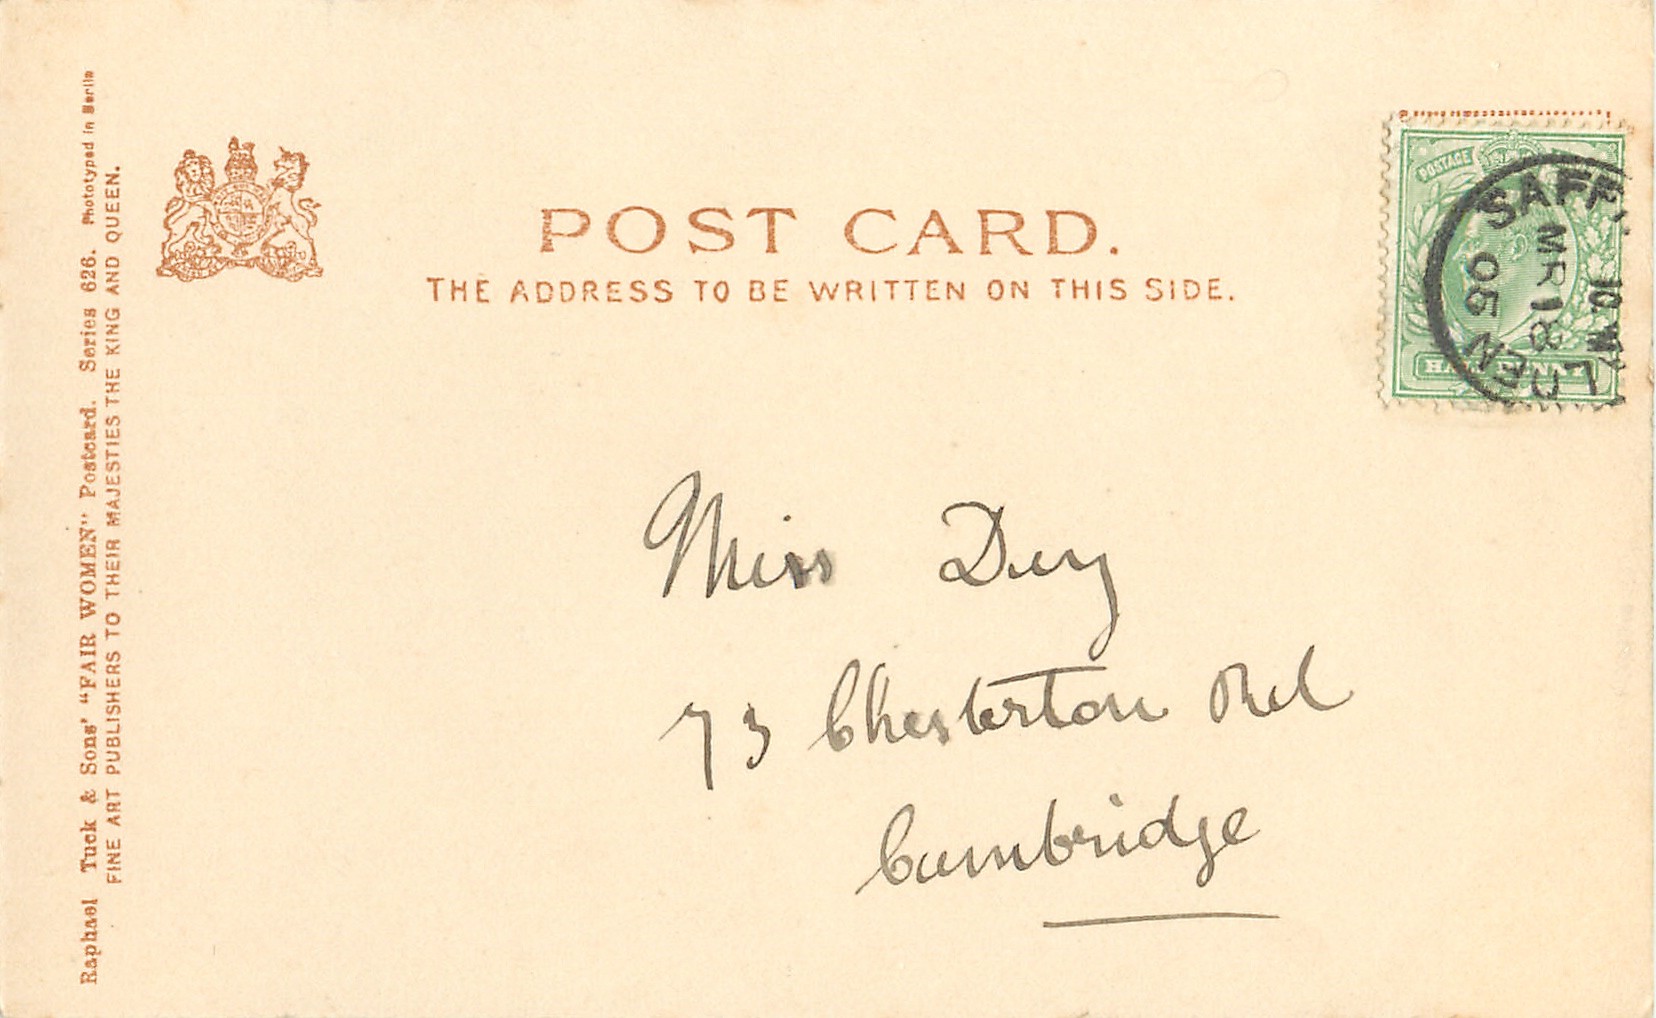 POST CARD.
THE ADDRESS TO BE WRITTEN ON THIS SIDE.
Raphael Tuck & Sons' "FAIR WOMEN" Postcard. Series 626. Phototyped in Berlin
FINE ART PUBLISHERS TO THEIR MAJESTIES THE KING AND QUEEN.
POSTAGE
HALFPENNY
SAFF
MR 18
05
EN
Miss Dery
73 Chesterton Rd
Cambridge